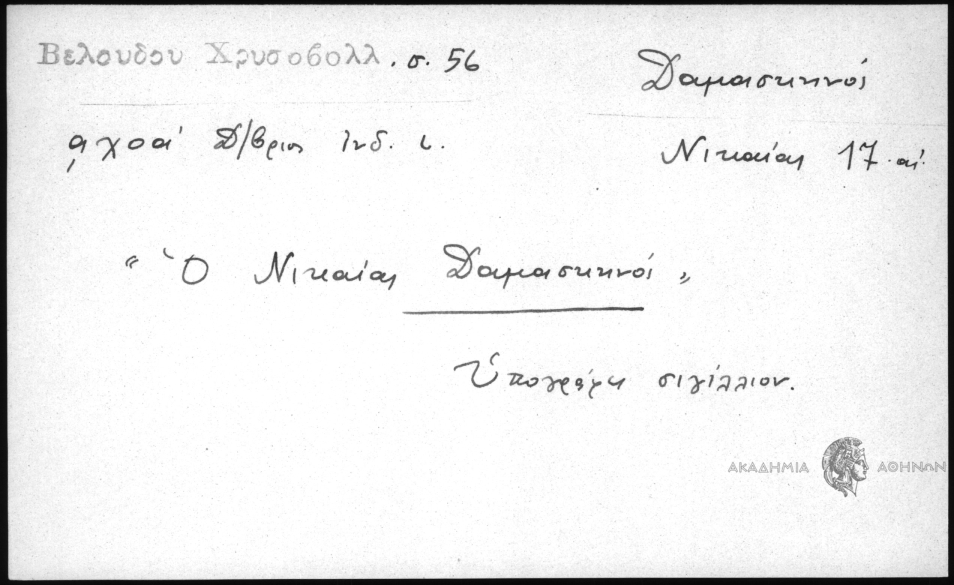 Βελουδου Χρυσοβολλ. σ. 56
Δαμασκηνός
͵αχοα΄ Δ/βριος ἰνδ. ι.
Νικαίας 17. αἰ.
" Ὁ Νικαίας Δαμασκηνός "
Ὑπογράφει σιγίλλιον.
ΑΚΑΔΗΜΙΑ ΑΘΗΝΩΝ